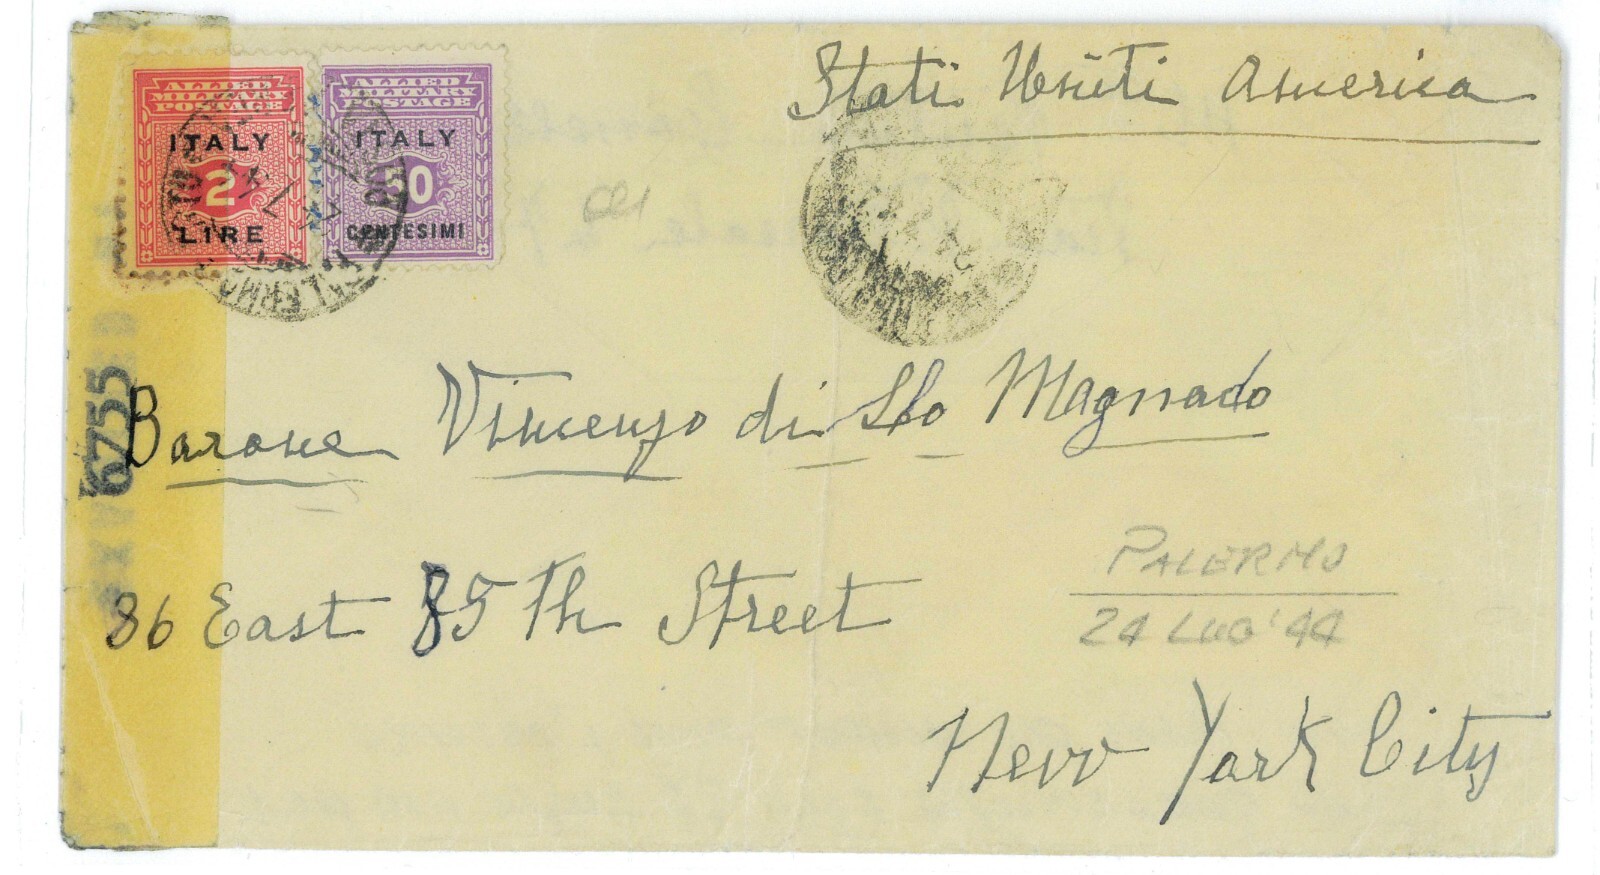 Stati Uniti America
ALLIED
MILITARY
POSTAGE
ITALY
2
LIRE
ALLIED
MILITARY
POSTAGE
ITALY
50
CENTESIMI
PALERMO
24
6755
Barone Vincenzo di Sto Magnado
86 East 85 Th Street
PALERMO
24 LUG '44
New York City